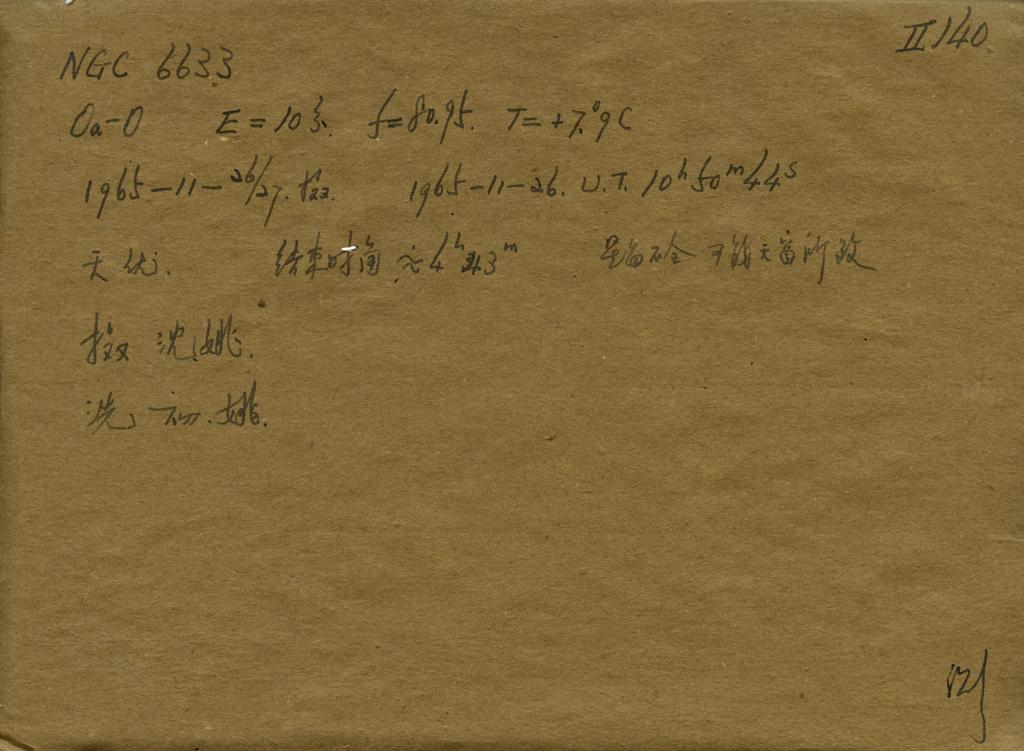 II 140
NGC 6633
Oa-O E = 10分. f=80.95. T= +7.°9C
1965-11-26/27. 摄. 1965-11-26. U.T. 10ʰ50ᵐ44ˢ
天优. 结束时角 ≈4ʰ43ᵐ 星 不全 可能天窗所致
摄 沈, 姚.
洗, 姚.